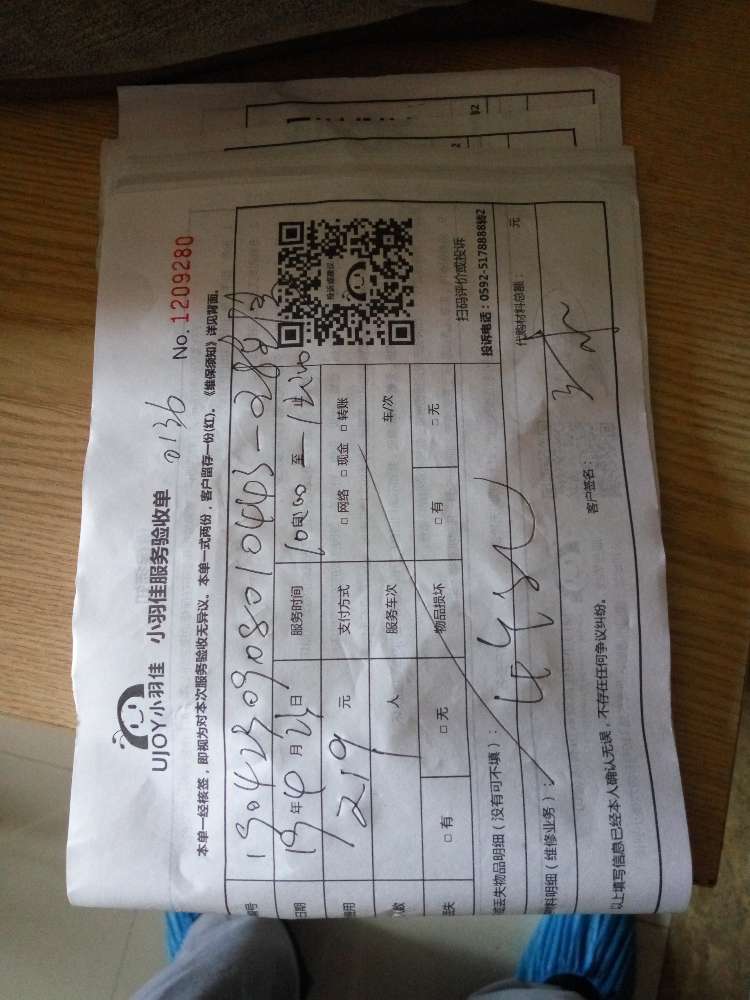 UJOY小羽佳 小羽佳服务验收单 0136 No. 1209280
本单一经核签,即视为对本次服务验收无异议。本单一式两份,客户留存一份(红)。《维保须知》详见背面。
编号
日期 年 月 日 服务时间 至
费用 219 元 支付方式 □ 网络 □ 现金 □ 转账
人数 人 服务车次 车/次
丢失 □ 有 □ 无 物品损坏 □ 有 □ 无
投诉或建议
扫码评价或投诉
投诉电话:0592-5178888转2
丢失物品明细(没有可不填):
材料明细(维修业务): 代购材料总额: 元
以上填写信息已经本人确认无误,不存在任何争议纠纷。 客户签名: